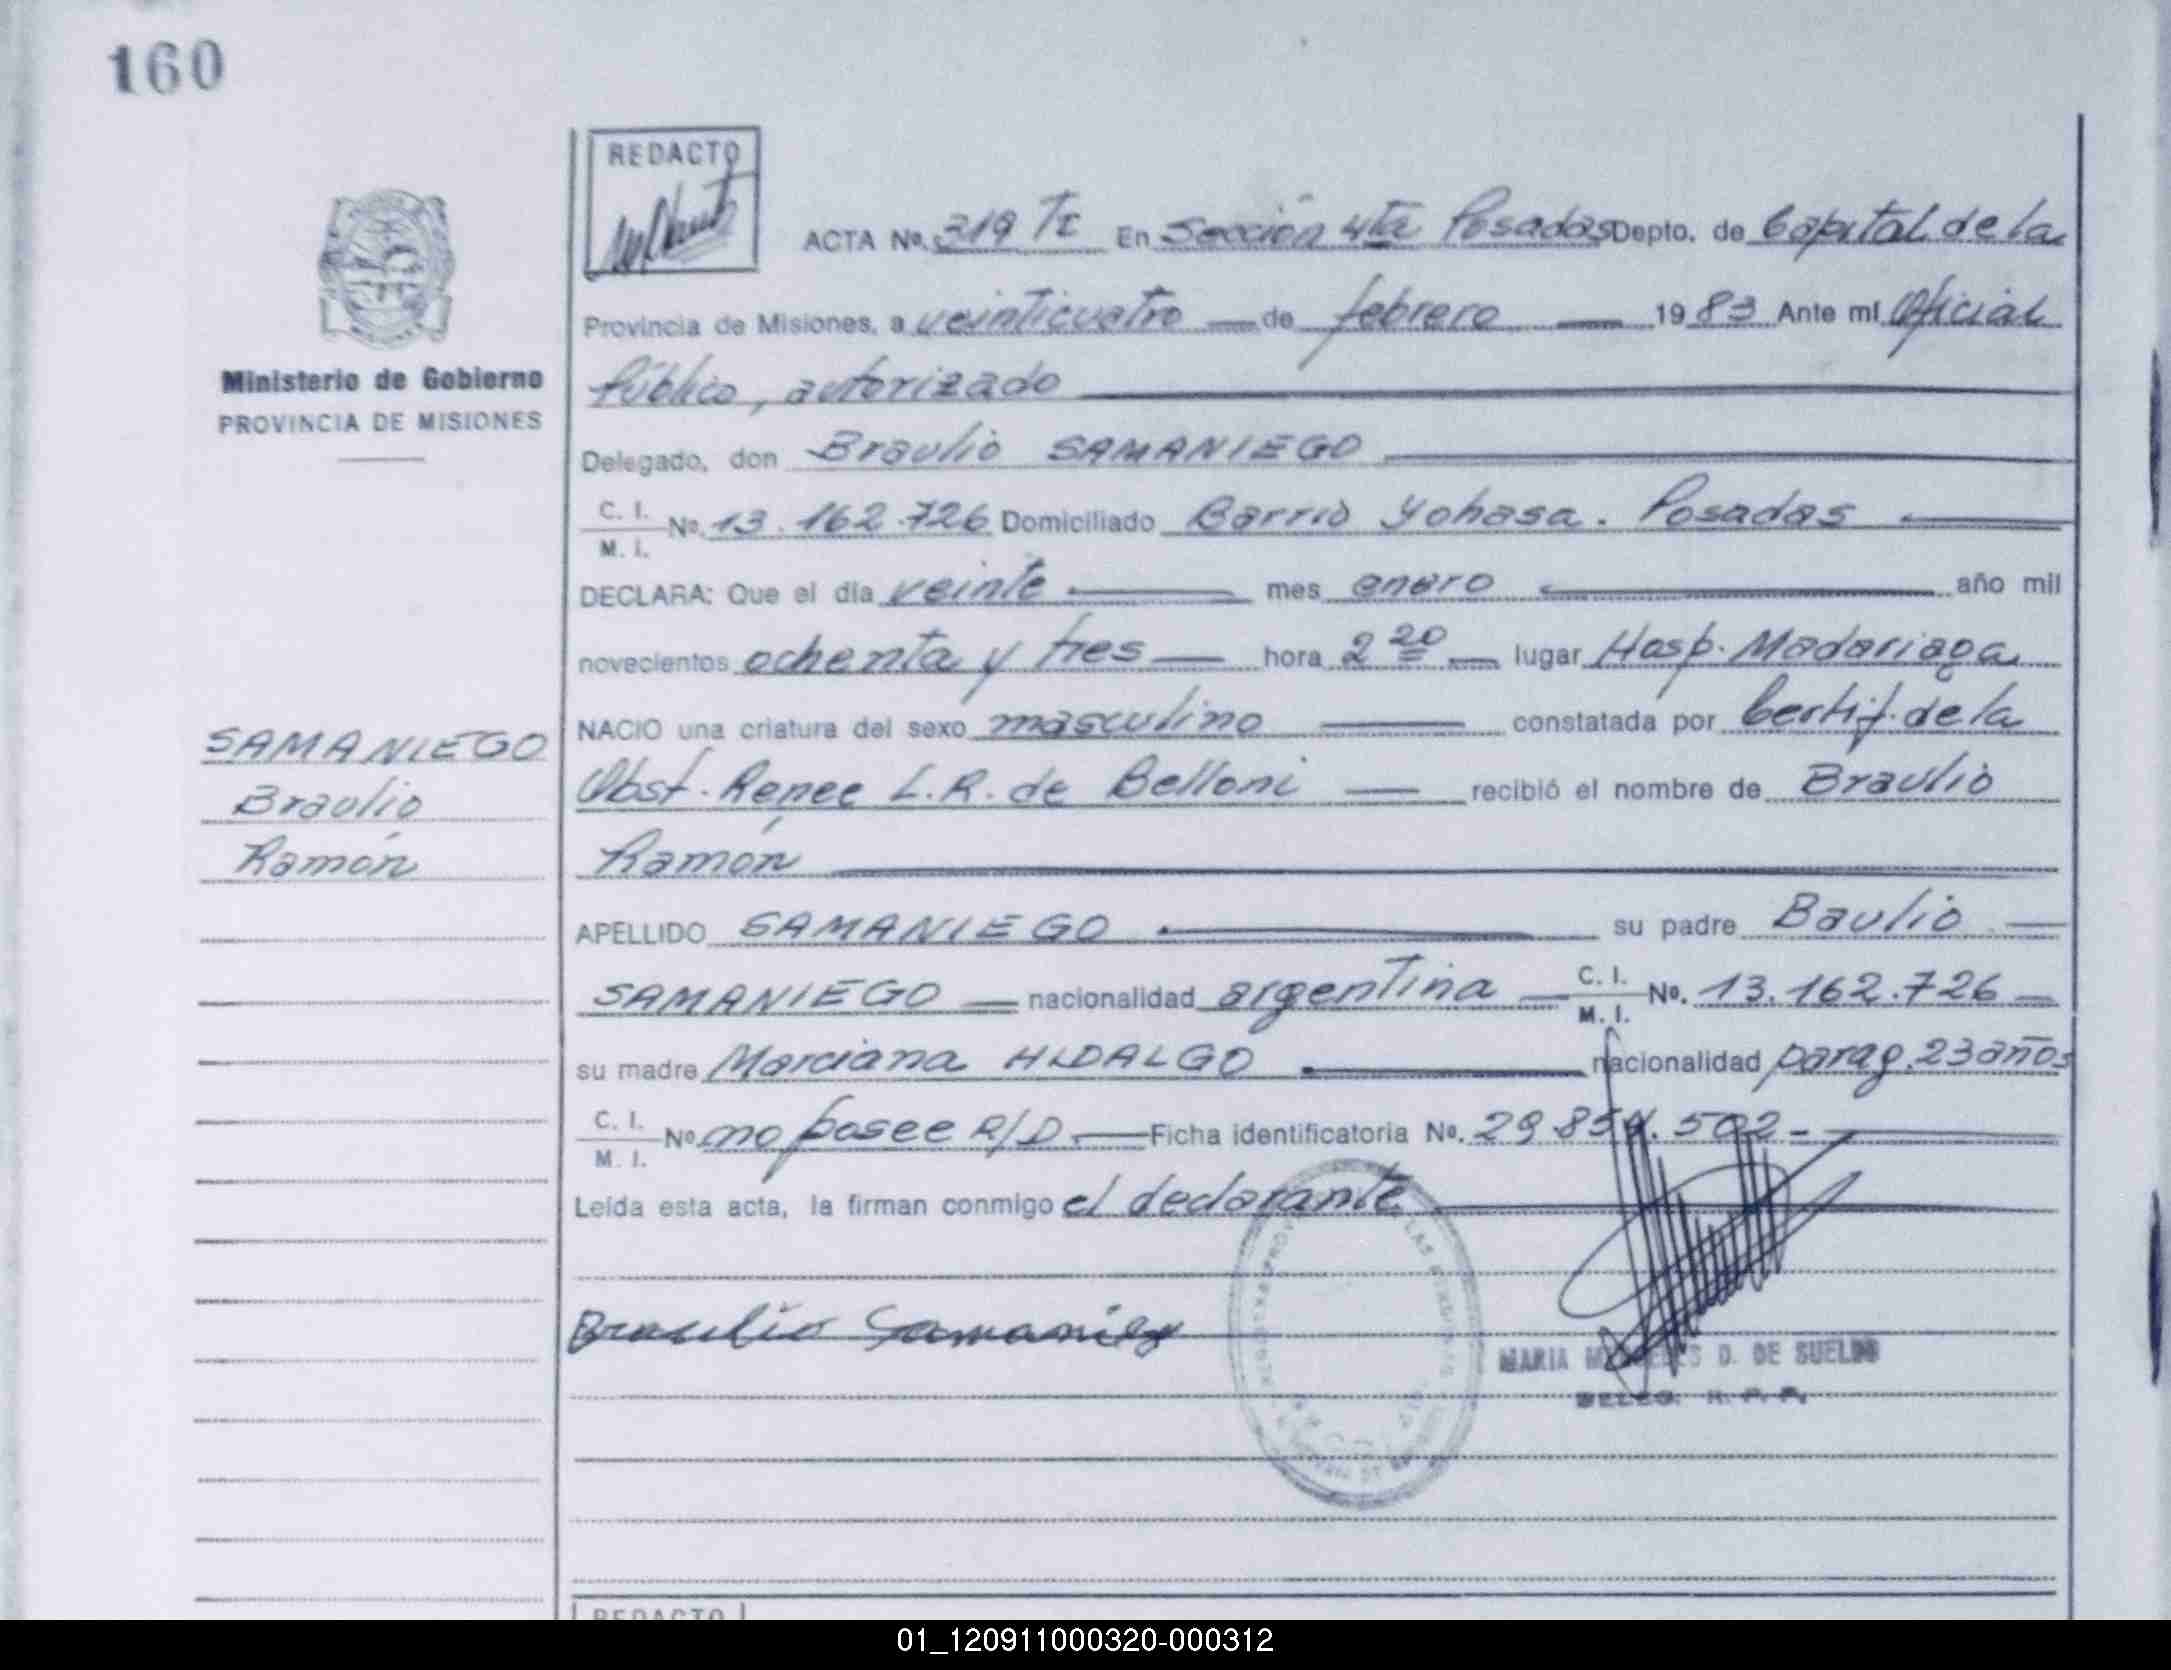 160
REDACTO
ACTA No. 319 Tz En Sección 4ta Posadas Depto. de Capital de la
Provincia de Misiones, a veinticuatro de febrero 1983 Ante mí Oficial
Ministerio de Gobierno
PROVINCIA DE MISIONES
Público, autorizado
Delegado, don Braulio SAMANIEGO
C. I. M. I. No. 13.162.726 Domiciliado Barrio Yohasa. Posadas
DECLARA: Que el día veinte mes enero año mil
novecientos ochenta y tres hora 2 20 lugar Hosp. Madariaga
NACIO una criatura del sexo masculino constatada por Certif. de la
SAMANIEGO
Braulio
Ramón
Obst. Renee L.R. de Belloni recibió el nombre de Braulio
Ramón
APELLIDO SAMANIEGO su padre Baulio
SAMANIEGO nacionalidad argentina C. I. M. I. No. 13.162.726
su madre Marciana HIDALGO nacionalidad parag. 23 años
C. I. M. I. No no posee R/D. Ficha identificatoria No. 29.854.502-
Leída esta acta, la firman conmigo el declarante
Braulio Samaniego
MARIA D. DE SUELDO
DELEG. R. P. P.
REDACTO
01_120911000320-000312